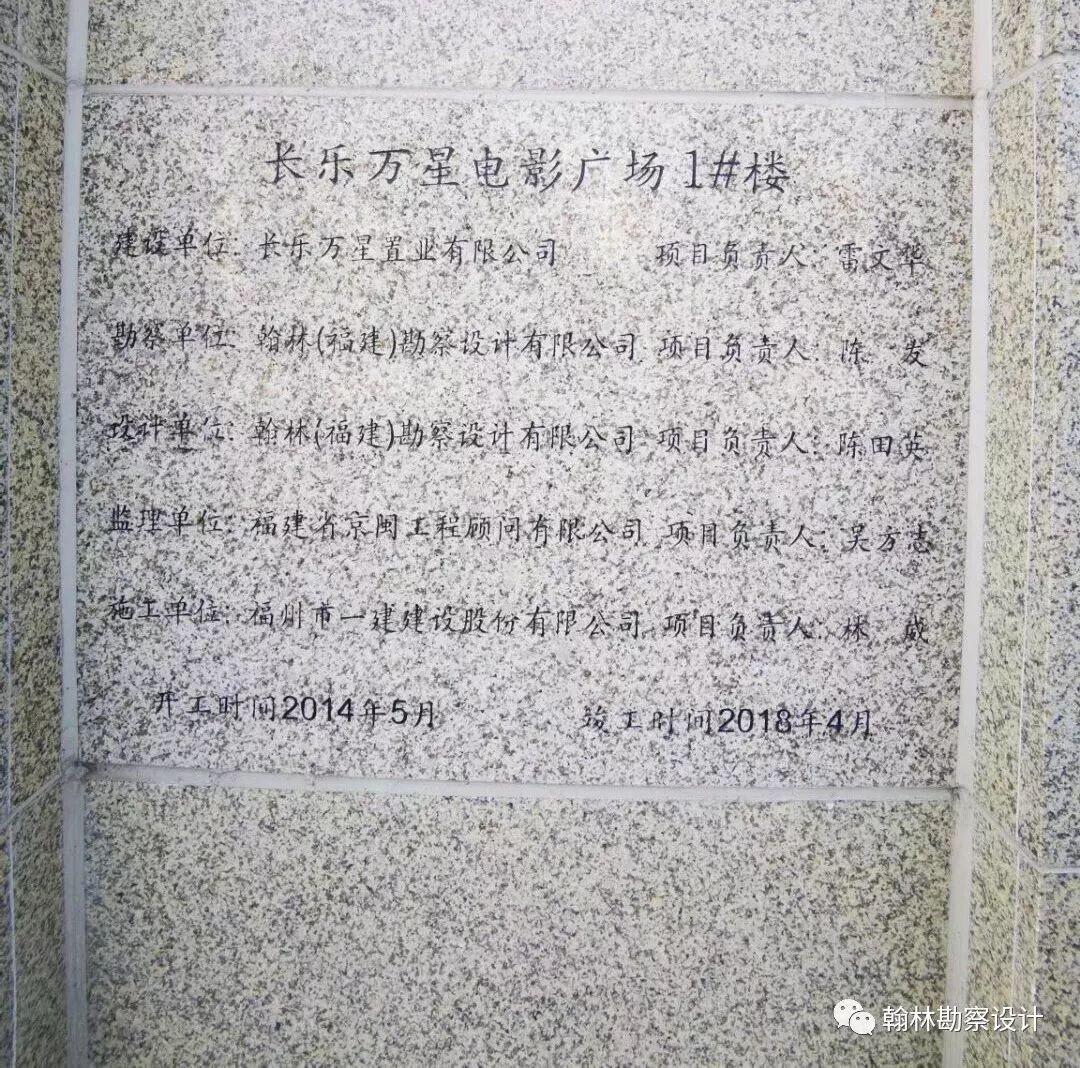 长乐万星电影广场1#楼
建设单位：长乐万星置业有限公司 项目负责人：雷文华
勘察单位：翰林(福建)勘察设计有限公司 项目负责人：陈 发
设计单位：翰林(福建)勘察设计有限公司 项目负责人：陈田英
监理单位：福建省京闽工程顾问有限公司 项目负责人：吴方志
施工单位：福州市一建建设股份有限公司 项目负责人：林 威
开工时间2014年5月 竣工时间2018年4月
翰林勘察设计